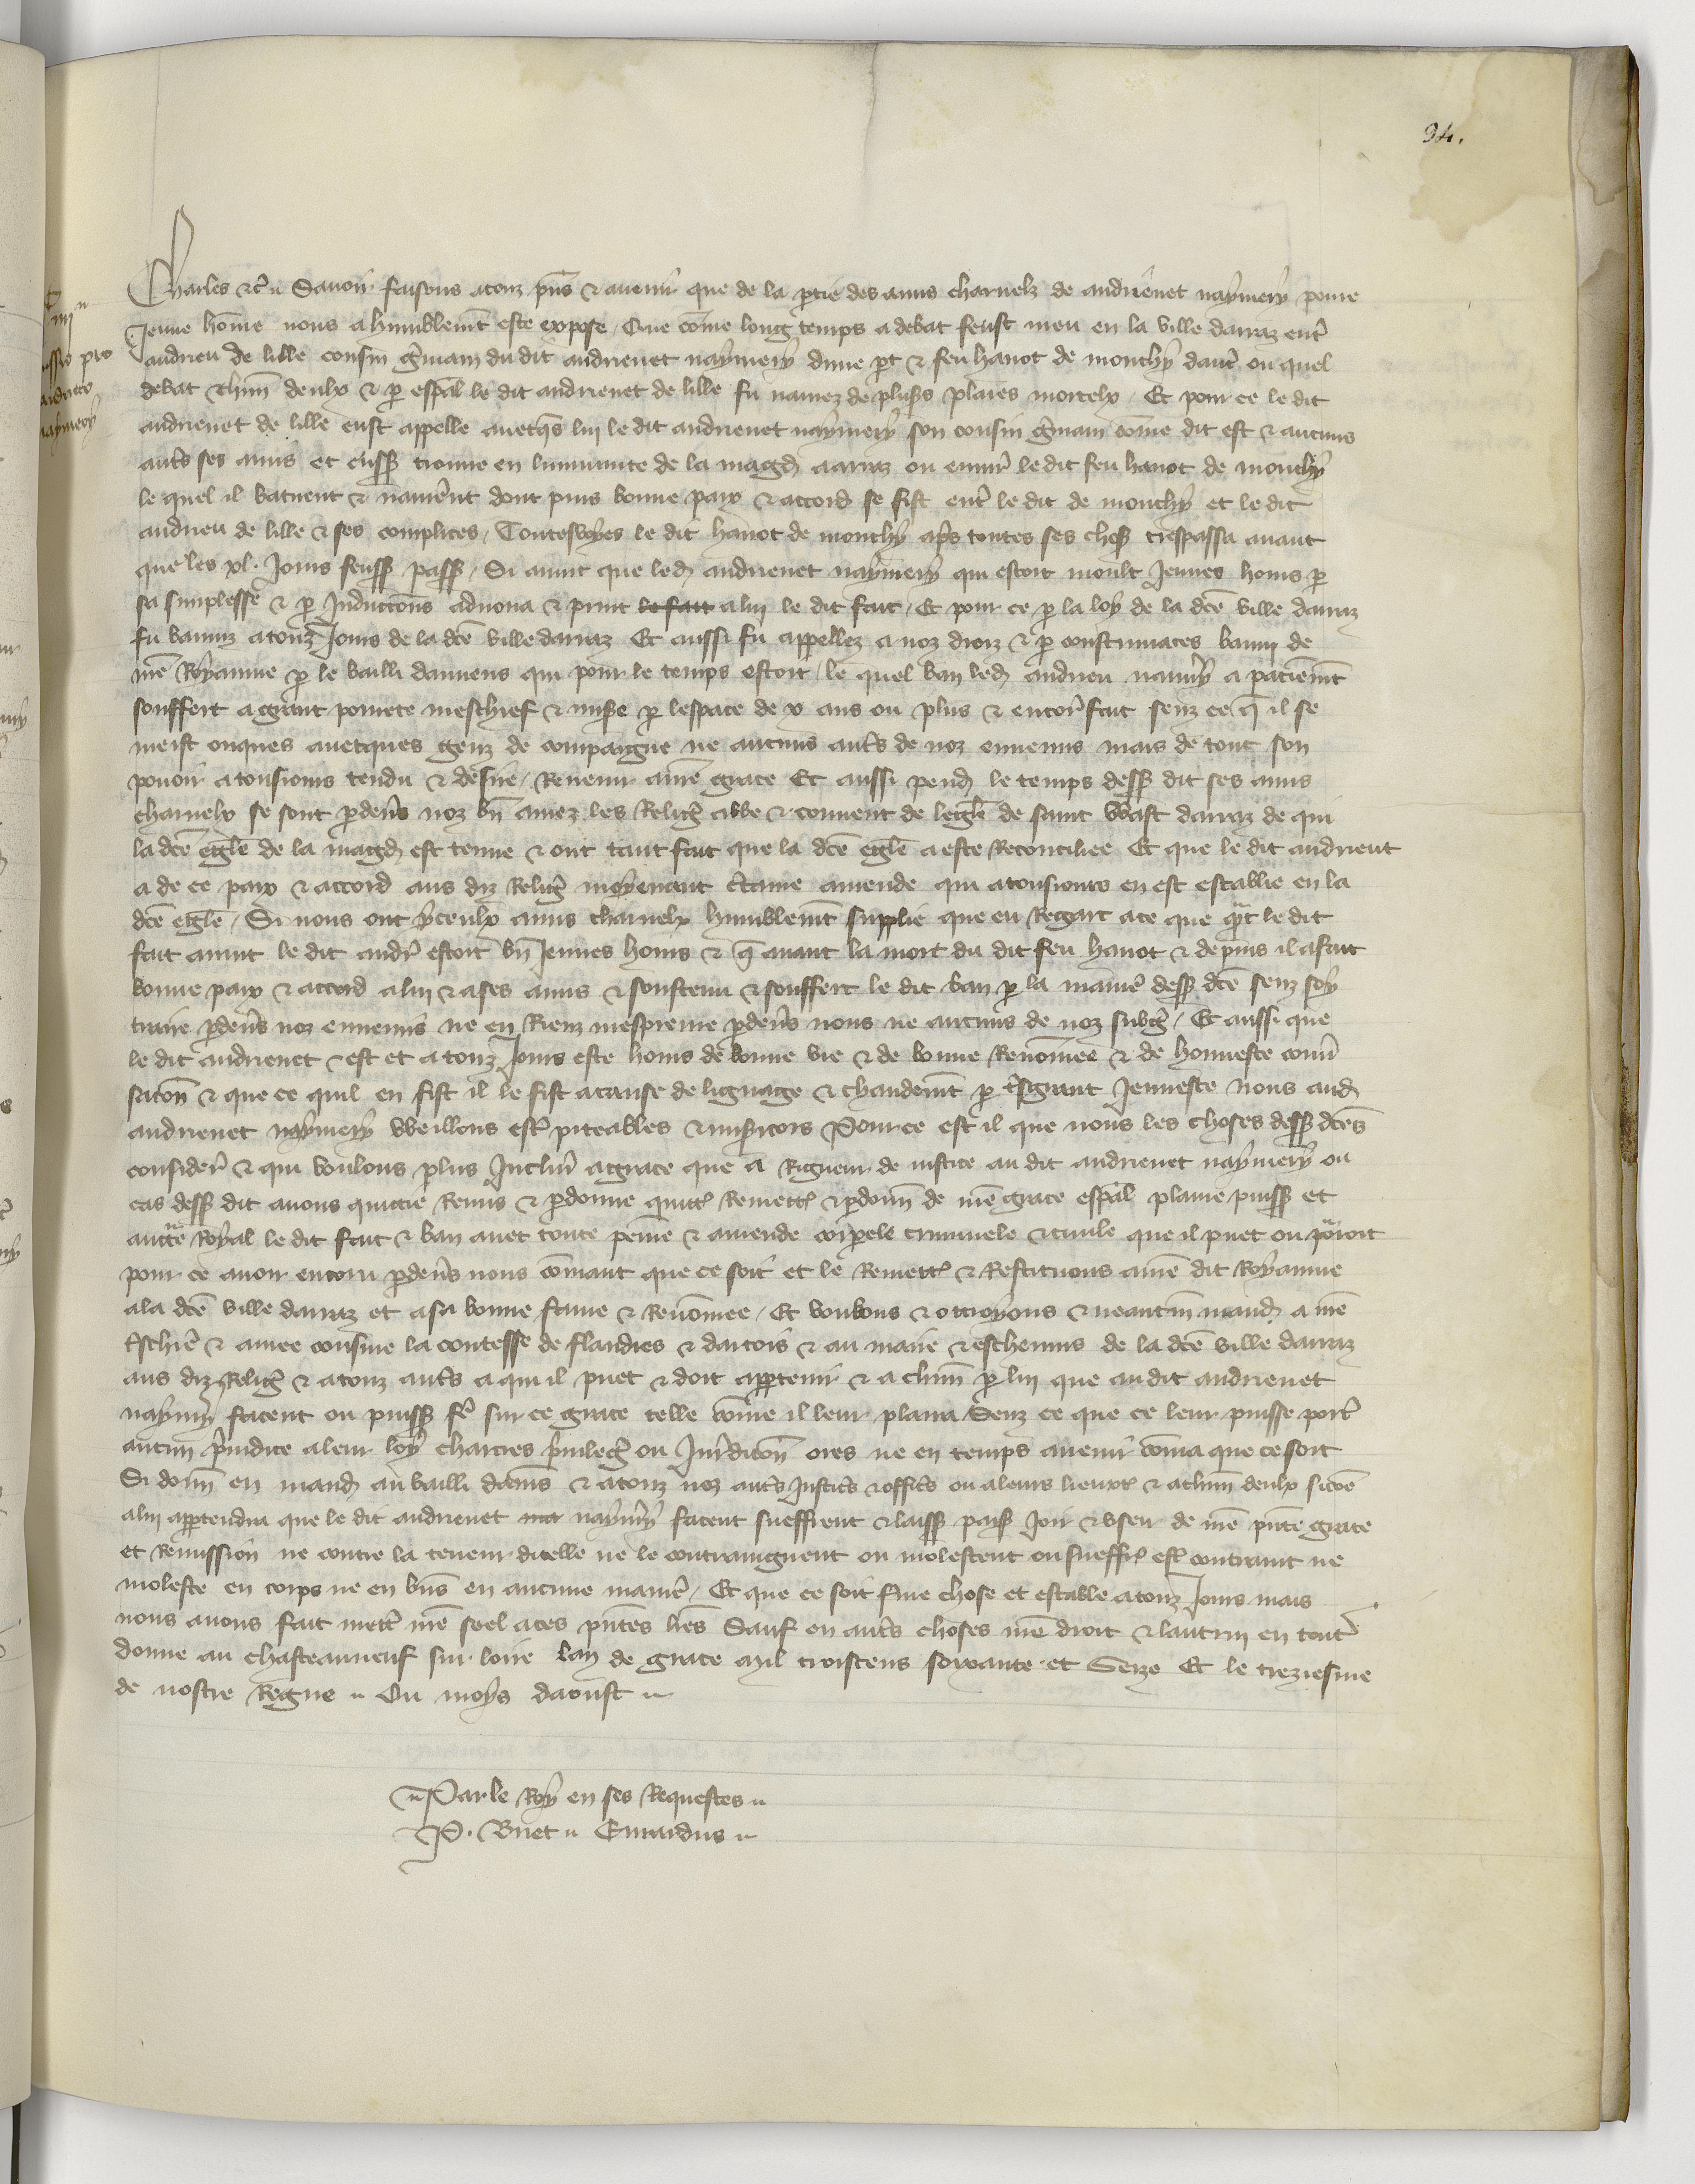 94.
Charles etc̃ Sauoir faisons a touz p̃ns & auenir que de la p̃tie des amis charnelz de andrieuet naymery poure
Jeune hõme nous a humblemẽt este expose / Que cõme long temps a debat feust meu en la ville darraz ent̃
andrieu de lille cousin g̃main du dit andrieuet naymery dune p̃t & feu hanot de monchy daut̃ ou quel
debat chũn deulx & p̃ esp̃al le dit andrieuet de lille fu naurez de plus̃s plaies mortelx / Et pour ce le dit
andrieuet de lille eust appelle auecq̃s lui le dit andrieuet naymery son cousin g̃main cõme dit est & aucuns
aut̃s ses amis et euss̃ trouue en lumunite de la magd̃ a arraz ou enuir̃ le dit feu hanot de monchy
le quel il batirent & naurerẽt dont puis bonne paix & accord se fist ent̃ le dit de monchy et le dit
andrieu de lille & ses complices / Toutesvoyes le dit hanot de monchy ap̃s toutes ses chos̃ trespassa auant
que les xl. Jours feuss̃ pass̃ / Si auint que led̃ andrieuet naymery qui estoit moult Jeunes homs p̃
sa simplesse & p̃ Inductiõns aduoua & print le fait a lui le dit fait / Et pour ce p̃ la loy de la dc̃e ville darraz
fu banniz a touz Jours de la dc̃e ville darraz Et aussi fu appellez a noz droiz & p̃ contumaces banni de
nr̃e Royaume p̃ le bailli damiens qui pour le temps estoit / le quel ban led̃ andrieu naym̃y a paciẽmẽt
souffert a grant pourete meschief & mis̃e p̃ lespace de x ans ou plus & encor̃ fait senz ce q̃ il se
meist onques auecques genz de compaigne ne aucuns aut̃s de noz ennemis mais de tout son
pouoir a tousiours tendu & desire / Reuenir a nr̃e grace Et aussi pend̃ le temps dess̃ dit ses amis
charnelx se sont p̃deũs noz bñ amez les Relig̃ abbe & conuent de legl̃e de saint Waast darraz de qui
la dc̃e egl̃e de la magd̃ est tenue & ont tant fait que la dc̃e egl̃e a este Reconciliee Et que le dit andrieuet
a de ce paix & accord aus diz Relig̃ moyenant c̃taine amende qui a tousiours en est establie en la
dc̃e egl̃e / Si nous ont yceulx amis charnelx humblemẽt supplie que eu Regart a ce que q̃nt le dit
fait auint le dit andr̃ estoit bñ Jeunes homs & q̃ auant la mort du dit feu hanot & depuis il a fait
bonne paix & accord a lui & a ses amis & soustenu & souffert le dit ban p̃ la manier̃ dess̃ dc̃e senz soy
traire p̃deũs noz ennemis ne en Riens mesprenre p̃deũs nous ne aucuns de noz subg̃ / Et aussi que
le dit andrieuet est et a touz Jours este homs de bonne vie & de bonne Renõmee & de honneste conũ
sac̃on & que ce quil en fist il le fist a cause de lignage & chaudemẽt p̃ t̃sgrant Jeunesce Nous aud̃
andrieuet naymery Weillons est̃ piteables & mis̃icors Pource est il que nous les choses dess̃ dc̃es
consider̃ & qui voulons plus Inclin̂ a grace que a Rigueur de iustice au dit andrieuet naymery ou
cas dess̃ dit auons quictie Remis & p̃donne quitt̃ Remett̃ & p̃donn̂ de nr̃e grace esp̃al plaine puiss̃ et
auct̃e Royal le dit fait & ban auec toute peine & amende corporele criminele & ciuile que il puet ou p̃oroit
pour ce auoir encoru p̃deũs nous cõmant que ce soit et le Remett̃ & Restituons a nr̃e dit Royaume
a la dc̃e ville darraz et a sa bonne fame & Renõmee / Et voulons & octroyons & neantm̃ mand̃ a nr̃e
t̃schier̃ & amee cousine la contesse de flandres & dartois & au maire & escheuins de la dc̃e ville darraz
aus diz Relig̃ & a touz aut̃s a qui il puet & doit app̃tenir & a chũn p̃ lui que au dit andrieuet
naym̃y facent ou puiss̃ fẽ sur ce grace telle cõme il leur plaira Senz ce que ce leur puisse port̃
aucun p̃iudice a leur loy chartres p̃uileg̃ ou Jur̃dicõn ores ne en temps auenir cõmẽ que ce soit
Si donn̂ en mand̃ au bailli damiẽs & a touz noz aut̃s Justic̃s & offic̃s ou a leurs lieuxt̃ & a chũn deulx si cõe
a lui app̃tendra que le dit andrieuet naym̃y facent sueffrent & laiss̃ pais̃ Joir & vser de nr̃e p̃nte grace
et Remission ne contre la teneur dicelle ne le contraingnent ou molestent ou sueffr̃ est̃ contraint ne
moleste en corps ne en biẽs en aucune manier̃ / Et que ce soit f̃me chose et estable a touz Jours mais
nous auons fait mett̃ nr̃e seel a ces p̃ntes lr̃es Sauf en aut̃s choses nr̃e droit & lautrui en tout̃
donne au chasteauneuf sur loire lan de grace mil troiscens soixante et Seize Et le treziesme
de nostre Regne Ou moys daoust
Par le Roy en ses Requestes
P. Briet Euuardus